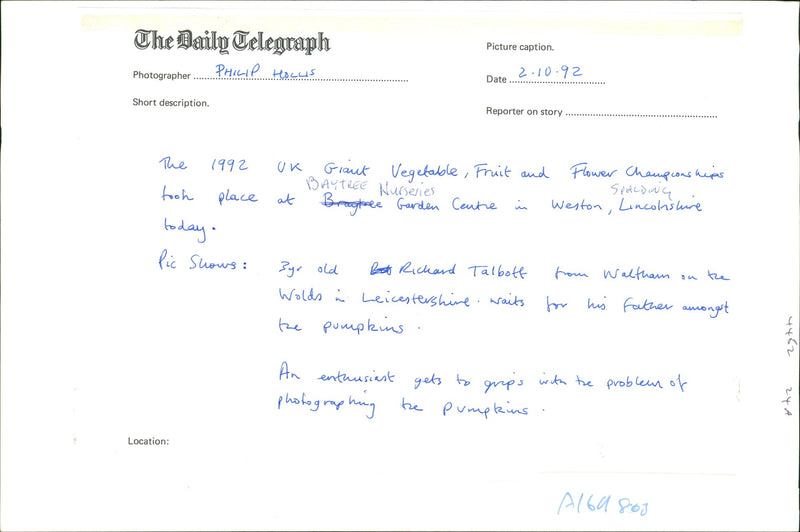 The Daily Telegraph
Picture caption.
Photographer PHILIP HOLLIS
Date 2.10.92
Short description.
Reporter on story
The 1992 UK Giant Vegetable, Fruit and Flower Championships
BAYTREE Nurseries SPALDING
took place at Braytree Garden Centre in Weston, Lincolnshire
today.
Pic Shows: 3yr old Richard Talbott from Waltham on the
Wolds in Leicestershire. waits for his father amongst
the pumpkins.
An enthusiast gets to grips with the problem of
photographing the pumpkins.
Location: